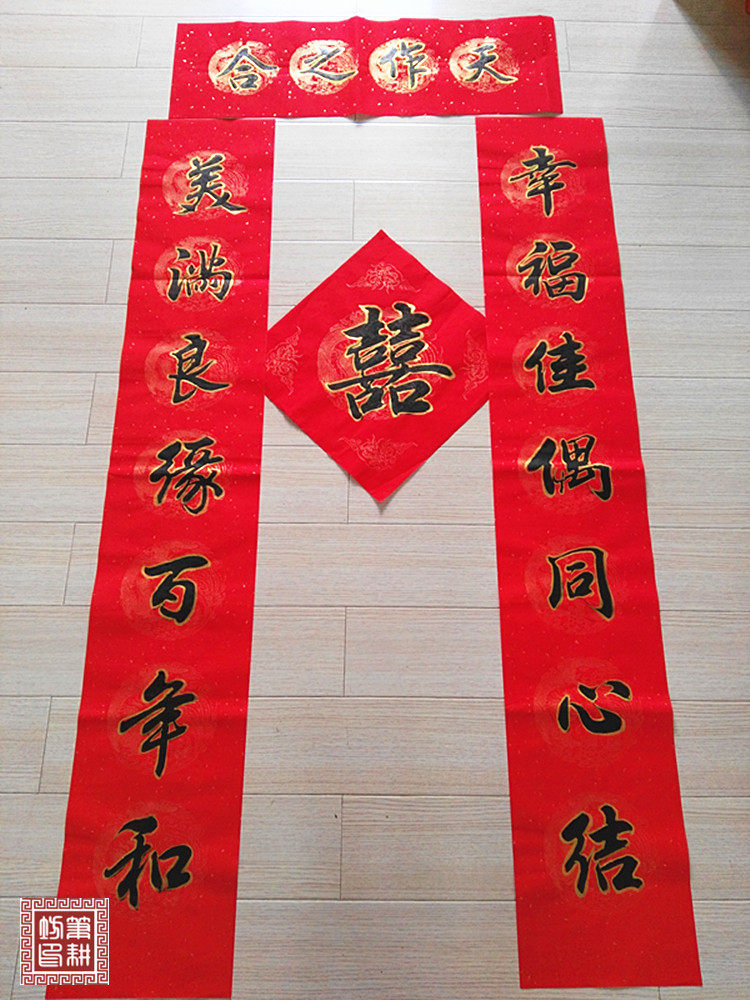 天作之合
幸福佳偶同心结
美满良缘百年和
囍
笔耕